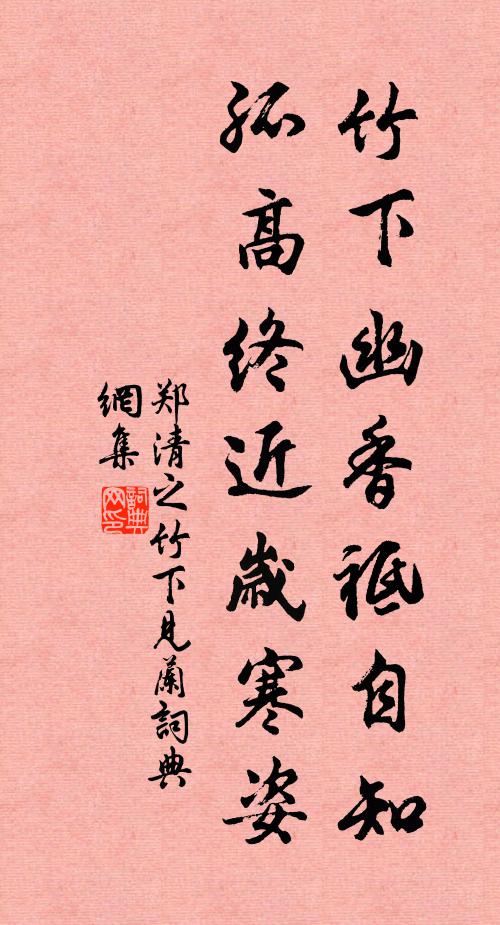 竹下幽香祗自知
孤高終近歲寒姿
郑清之竹下見蘭詞典
網集
詞典
网印